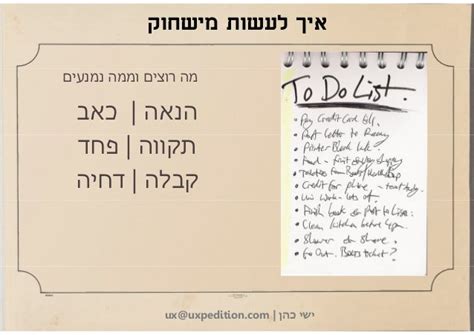 איך לעשות מישחוק
מה רוצים וממה נמנעים
הנאה | כאב
תקווה | פחד
קבלה | דחיה
To Do List.
• Pay Credit Card bill.
• Post Letter to
• Printer Black Ink.
• Food - fruit
•
• Credit for phone -
• Uni work - lots of.
• Finish book
• Clean kitchen before 4pm.
• Shower & Shave.
• Go Out. ticket?
ישי כהן | ux@uxpedition.com